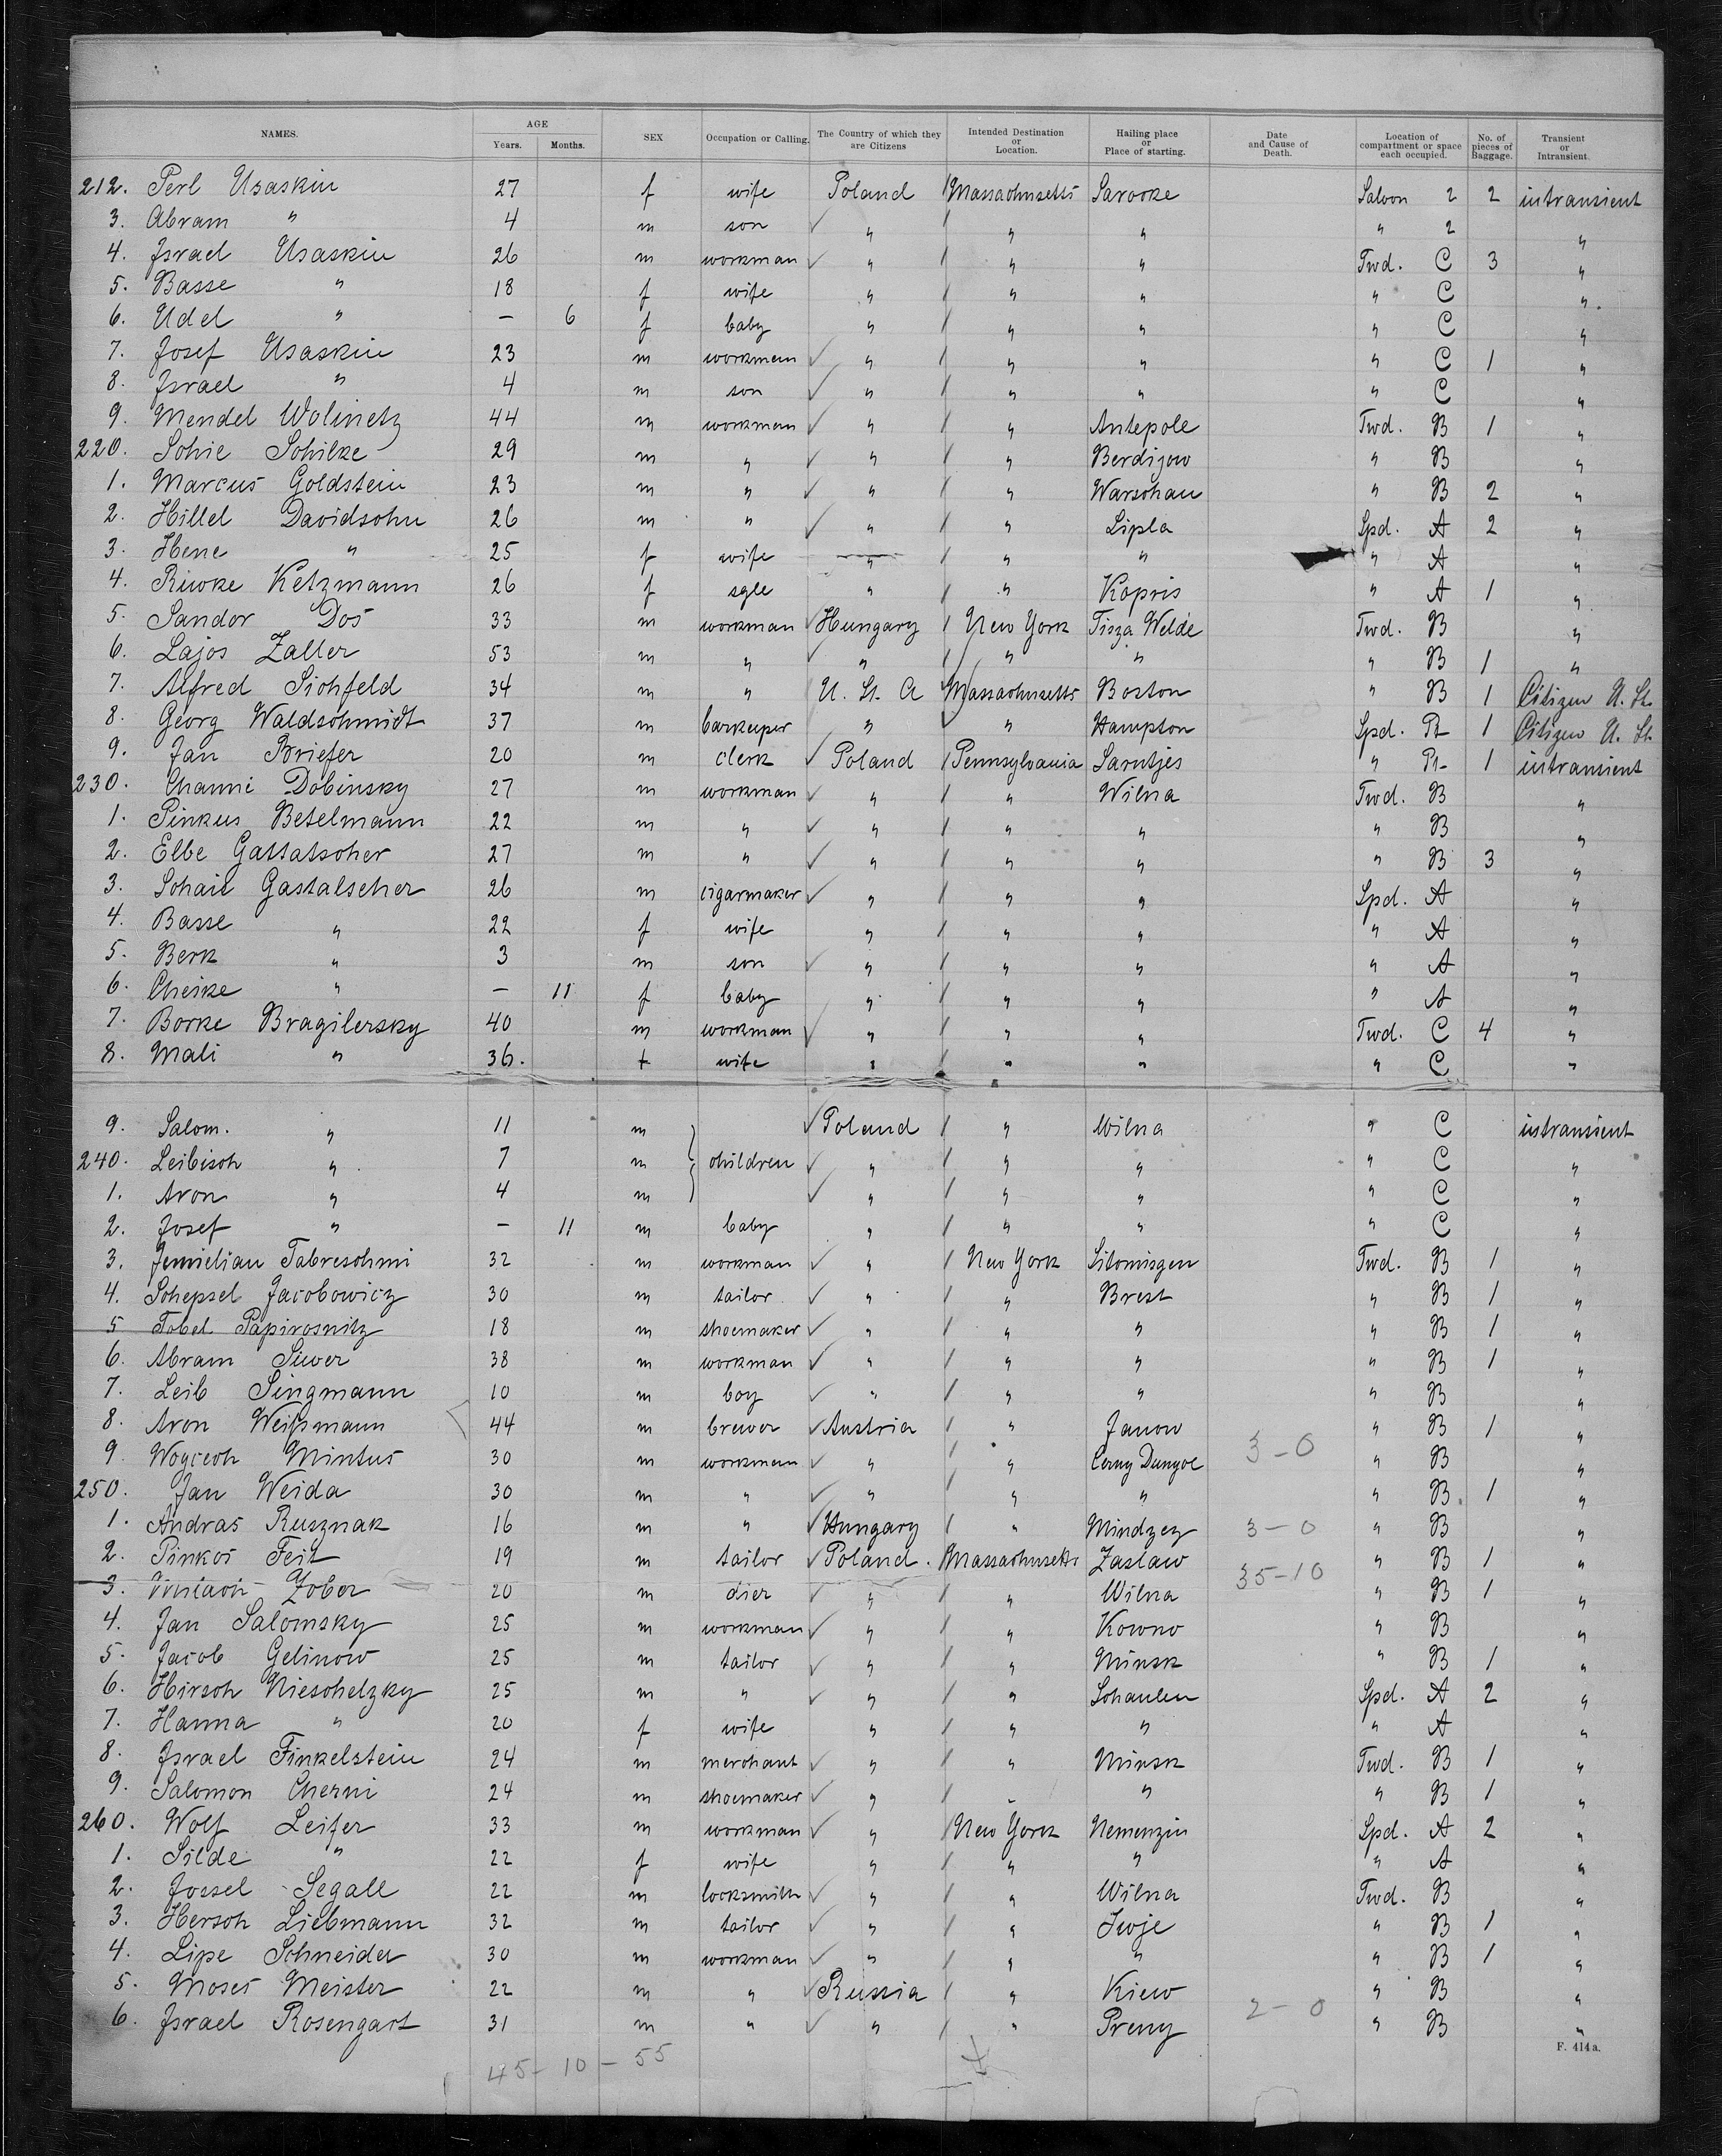 NAMES. AGE Years. Months. SEX Occupation or Calling. The Country of which they are Citizens Intended Destination or Location. Hailing place or Place of starting. Date and Cause of Death. Location of compartment or space each occupied. No. of pieces of Baggage. Transient or Intransient.
212. Perl Usaskin 27 f wife Poland Massachusetts Sarooke Saloon 2 2 intransient
3. Abram " 4 m son " " " " 2 "
4. Israel Usaskin 26 m workman " " " Twd. C 3 "
5. Basse " 18 f wife " " " " C "
6. Udel " — 6 f baby " " " " C "
7. Josef Usaskin 23 m workman " " " " C 1 "
8. Israel " 4 m son " " " " C "
9. Mendel Wolinetz 44 m workman " " Antepole Twd. B 1 "
220. Schie Schilke 29 m " " " Berdijow " B "
1. Marcus Goldstein 23 m " " " Warschau " B 2 "
2. Hillel Davidsohn 26 m " " " Lipla Spd. A 2 "
3. Hene " 25 f wife " " " " A "
4. Riwke Ketzmann 26 f sgle " " Kopris " A 1 "
5. Sandor Dos 33 m workman Hungary New York Tisza Welde Twd. B "
6. Lajos Zaller 53 m " " " " " B 1 "
7. Alfred Sichfeld 34 m " U. St. A Massachusetts Boston " B 1 Citizen U. St.
8. Georg Waldschmidt 37 m barkeeper " " Hampton Spd. 1 Citizen U. St.
9. Jan Briefer 20 m clerk Poland Pennsylvania Sarntjes " 1 intransient
230. Channe Dobinsky 27 m workman " " Wilna Twd. B "
1. Pinkus Betelmann 22 m " " " " " B "
2. Elbe Gattatscher 27 m " " " " " B 3 "
3. Schaie Gastalscher 26 m cigarmaker " " " Spd. A "
4. Basse " 22 f wife " " " " A "
5. Berk " 3 m son " " " " A "
6. Cheike " — 11 f baby " " " " A "
7. Borke Bragilersky 40 m workman " " " Twd. C 4 "
8. Mali " 36. f wife " " " " C "
9. Salom. " 11 m Poland " Wilna " C intransient
240. Leibisch " 7 m children " " " " C "
1. Aron " 4 m " " " " C "
2. Josef " — 11 m baby " " " " C "
3. Jemielian Tabreschmi 32 m workman " New York Sitomisgen Twd. B 1 "
4. Schepsel Jacobowicz 30 m tailor " " Brest " B 1 "
5 Tobel Papirosnitz 18 m shoemaker " " " " B 1 "
6. Abram Siwer 38 m workman " " " " B 1 "
7. Leib Singmann 10 m boy " " " " B "
8. Aron Weißmann 44 m brewer Austria " Janow " B 1 "
9. Woyciech Mintus 30 m workman " " Cerny Dunyoe 3-0 " B "
250. Jan Weida 30 m " " " " " B 1 "
1. Andras Rusznak 16 m " Hungary " Mindzez 3-0 " B "
2. Pinkos Feit 19 m tailor Poland. Massachusetts Zaslaw 35-10 " B 1 "
3. Zober 20 m dier " " Wilna " B 1 "
4. Jan Salomsky 25 m workman " " Kowno " B "
5. Jacob Gelinow 25 m tailor " " Minsk " B 1 "
6. Hirsch Nieschelzky 25 m " " " Schaulen Spd. A 2 "
7. Hanna " 20 f wife " " " " A "
8. Israel Finkelstein 24 m merchant " " Minsk Twd. B 1 "
9. Salomon Cherni 24 m shoemaker " " " " B 1 "
260. Wolf Leifer 33 m workman " New York Nemenzin Spd. A 2 "
1. Silde " 22 f wife " " " " A "
2. Jossel Segall 22 m locksmith " " Wilna Twd. B "
3. Hersch Liebmann 32 m tailor " " Iwoje " B 1 "
4. Lipe Schneider 30 m workman " " " " B 1 "
5. Moses Meister 22 m " Russia " Kiew " B "
6. Israel Rosengart 31 m " " " Preny 2-0 " B "
F. 414a.
45-10-55